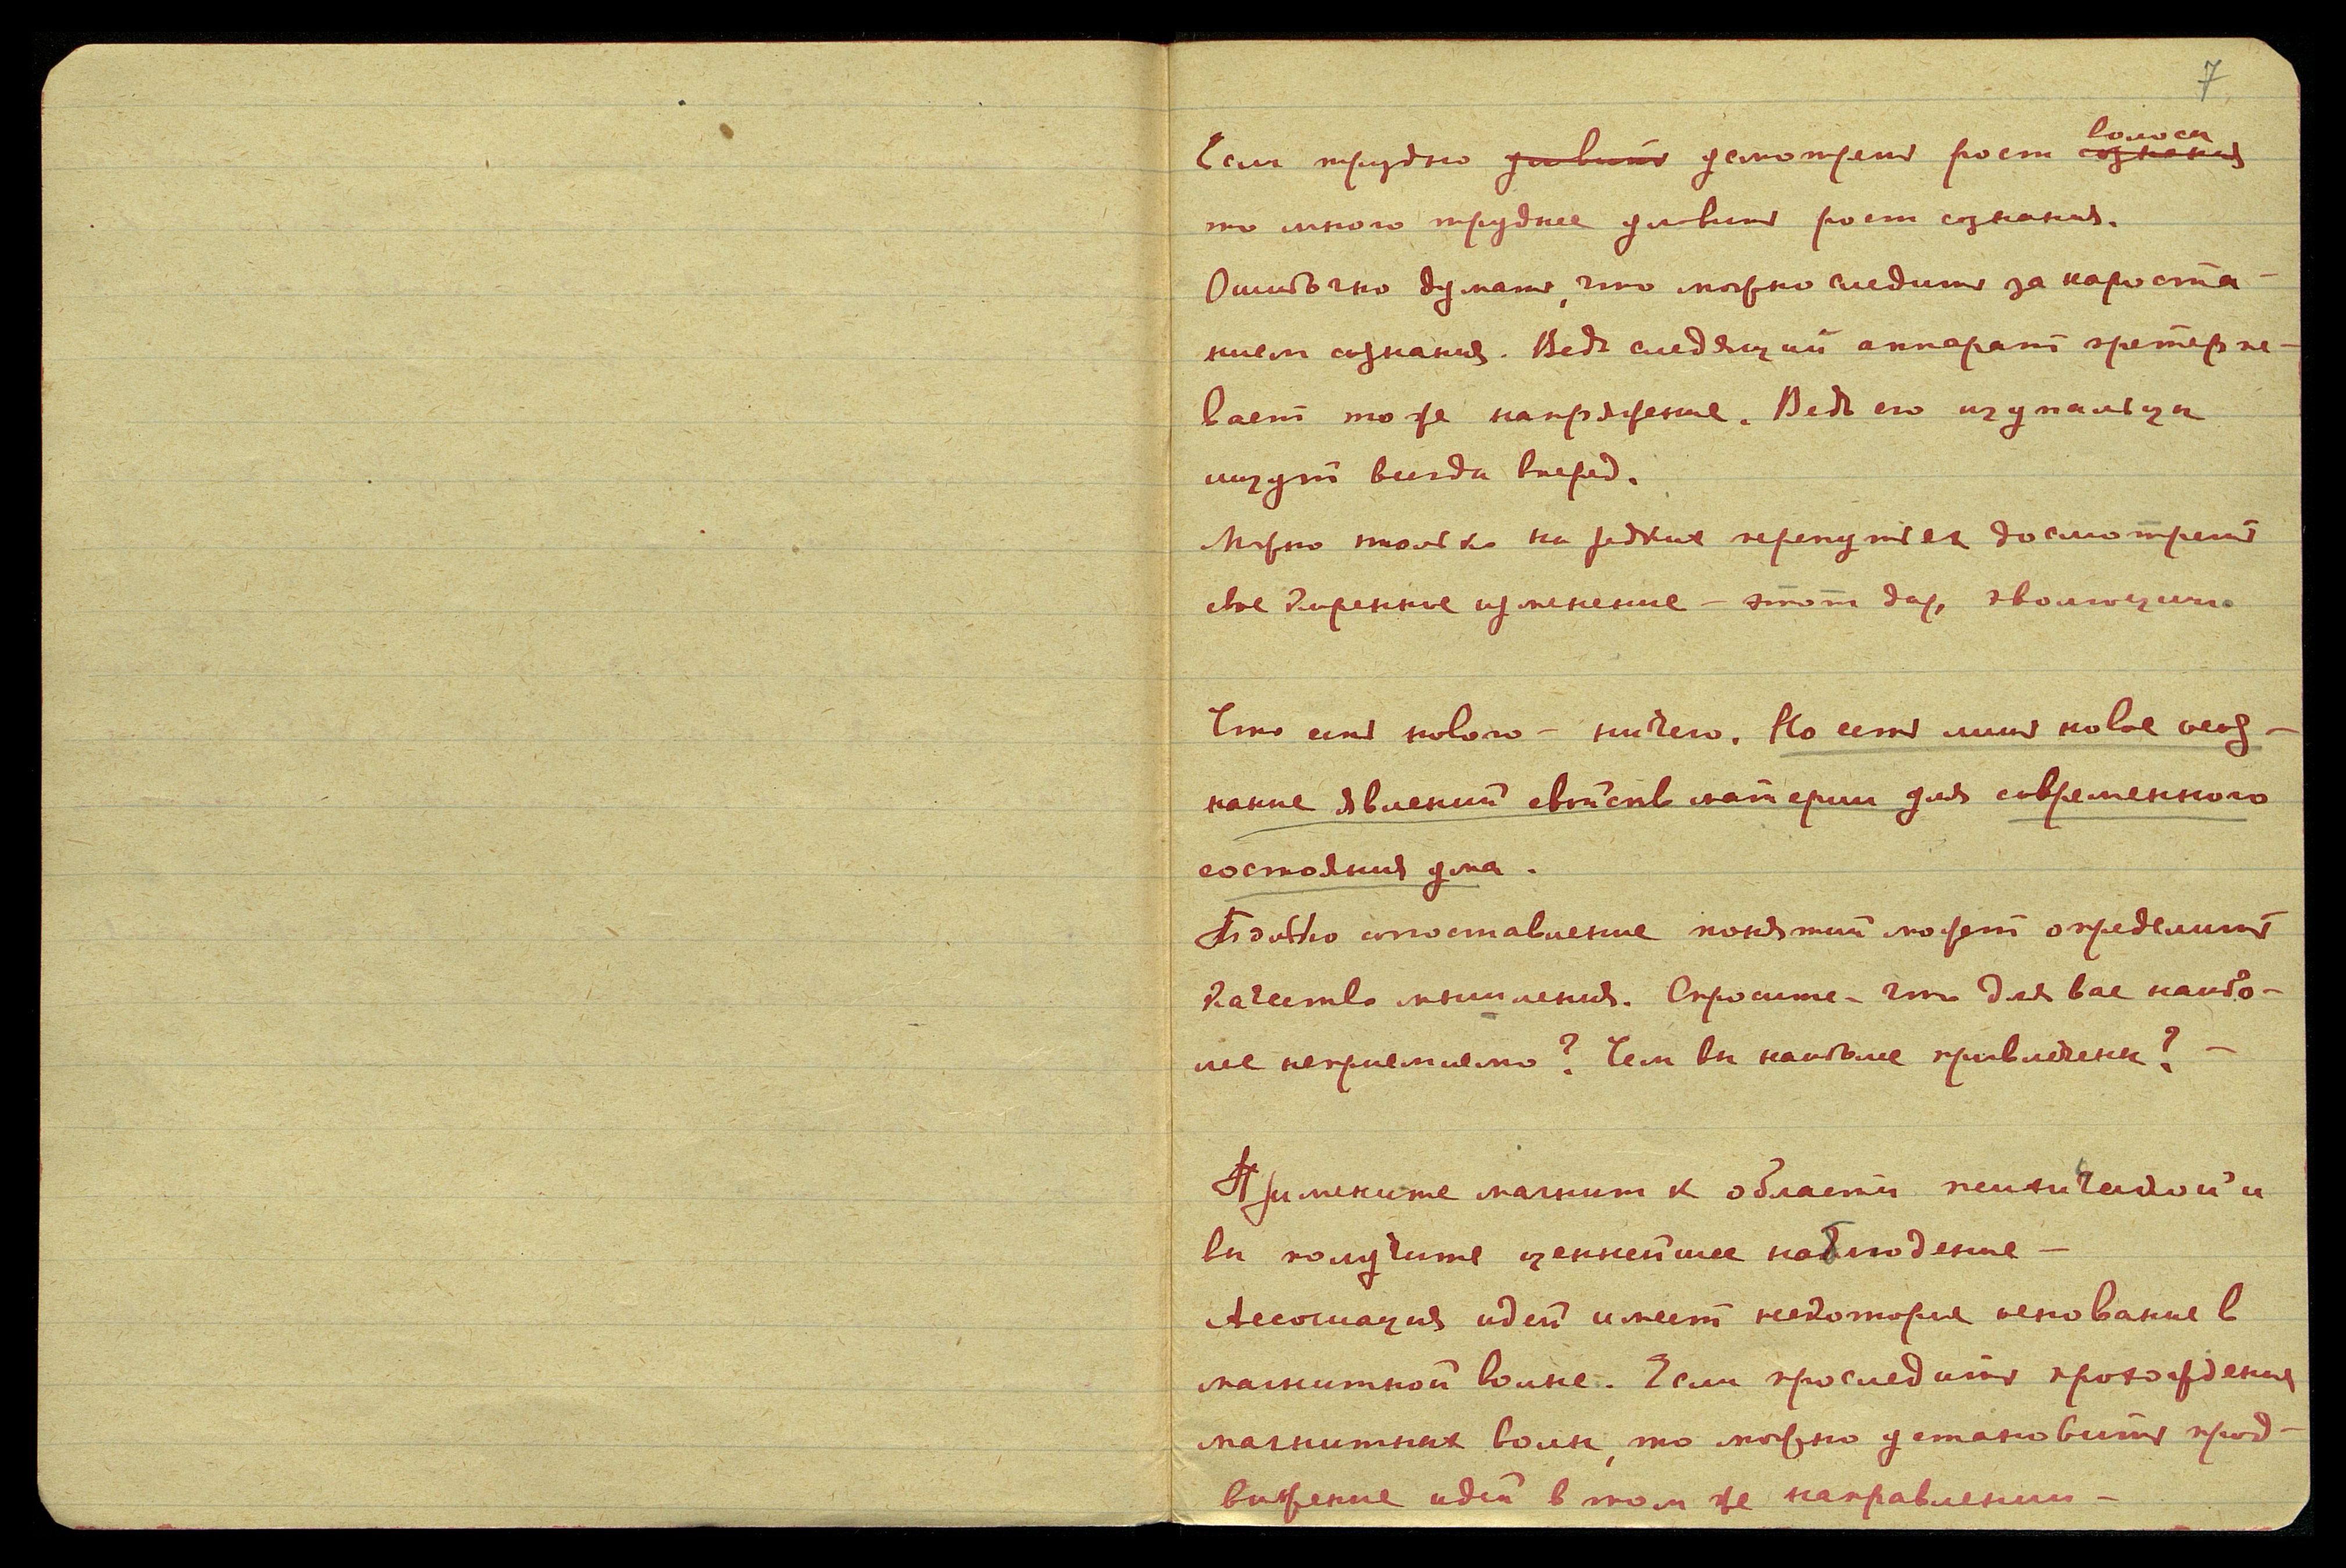 7
волоса
Если трудно уловить усмотреть рост сознания
то много труднее уловить рост сознания.
Ошибочно думать, что можно следить за нароста-
нием сознания. Ведь следящий аппарат претерпе-
вает то же напряжение. Ведь его щупальцы
ищут всегда вперед.
Можно только на редких перепутьях досмотреть
свое коренное изменение – этот дар эволюции.
Что есть нового – ничего. Но есть лишь новое осоз-
нание явлений свойств материи для современного
состояния ума.
сопоставление понятий может определить
качество мышления. Спросите – что для вас наибо-
лее неприемлемо? Чем вы наиболее привлечены? –
Примените магнит к области психической и
вы получите ценнейшее наблюдение –
Ассоциация идей имеет некоторые основание в
магнитной волне. Если проследить прохождения
магнитных волн, то можно установить прод-
вижение идей в том же направлении –